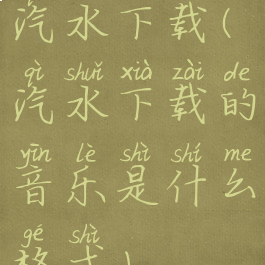 汽水下载(
qì shuǐ xià zài de
汽水下载的
yīn lè shì shí me
音乐是什么
gé shì
格式)